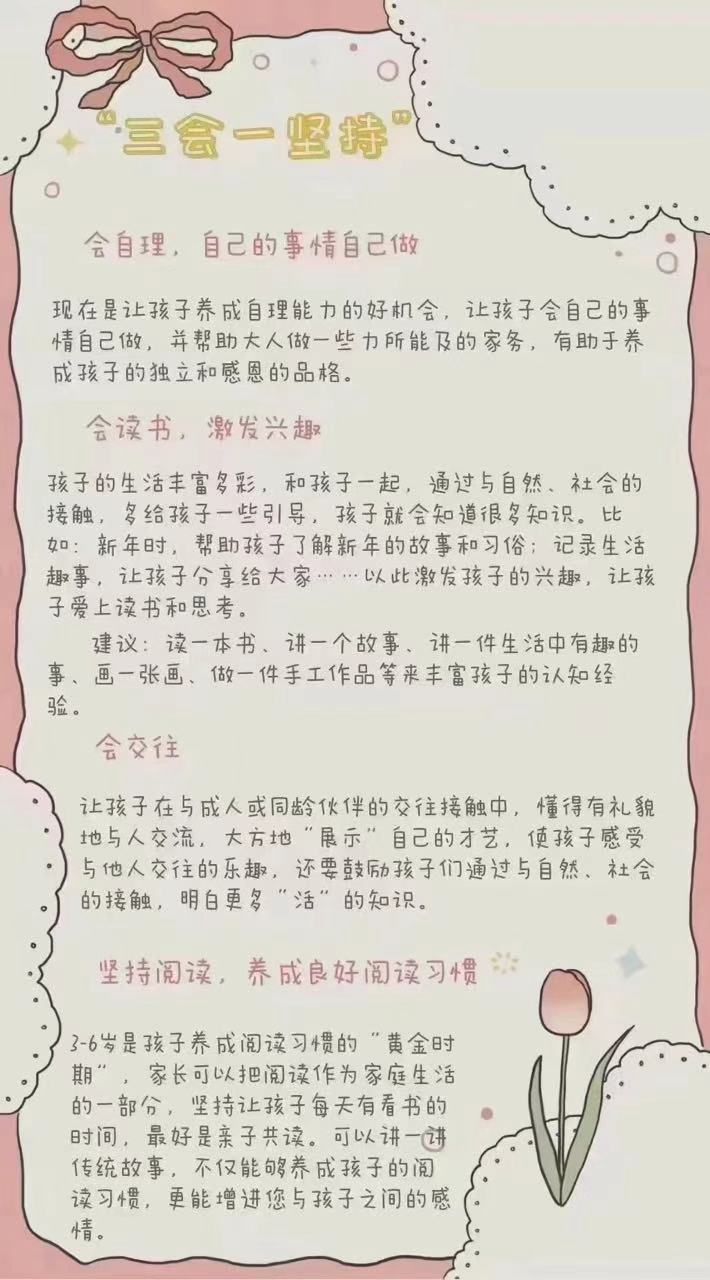 “三会一坚持”
会自理，自己的事情自己做
现在是让孩子养成自理能力的好机会，让孩子会自己的事
情自己做，并帮助大人做一些力所能及的家务，有助于养
成孩子的独立和感恩的品格。
会读书，激发兴趣
孩子的生活丰富多彩，和孩子一起，通过与自然、社会的
接触，多给孩子一些引导，孩子就会知道很多知识。比
如：新年时，帮助孩子了解新年的故事和习俗；记录生活
趣事，让孩子分享给大家……以此激发孩子的兴趣，让孩
子爱上读书和思考。
建议：读一本书、讲一个故事、讲一件生活中有趣的
事、画一张画、做一件手工作品等来丰富孩子的认知经
验。
会交往
让孩子在与成人或同龄伙伴的交往接触中，懂得有礼貌
地与人交流，大方地“展示”自己的才艺，使孩子感受
与他人交往的乐趣，还要鼓励孩子们通过与自然、社会
的接触，明白更多“活”的知识。
坚持阅读，养成良好阅读习惯
3-6岁是孩子养成阅读习惯的“黄金时
期”，家长可以把阅读作为家庭生活
的一部分，坚持让孩子每天有看书的
时间，最好是亲子共读。可以讲一讲
传统故事，不仅能够养成孩子的阅
读习惯，更能增进您与孩子之间的感
情。